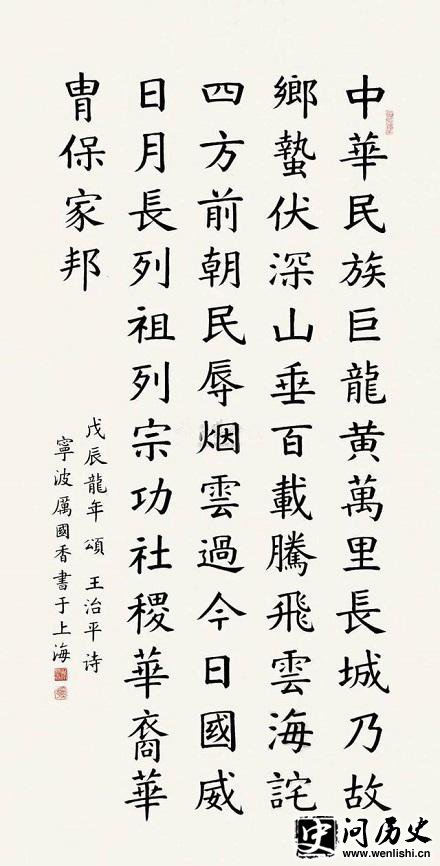 中華民族巨龍黄萬里長城乃故
鄉蟄伏深山垂百載騰飛雲海詫
四方前朝民辱烟雲過今日國威
日月長列祖列宗功社稷華裔華
胄保家邦
戊辰龍年頌 王治平诗
寧波厲國香書于上海
史 问历史
www.wenlishi.cn